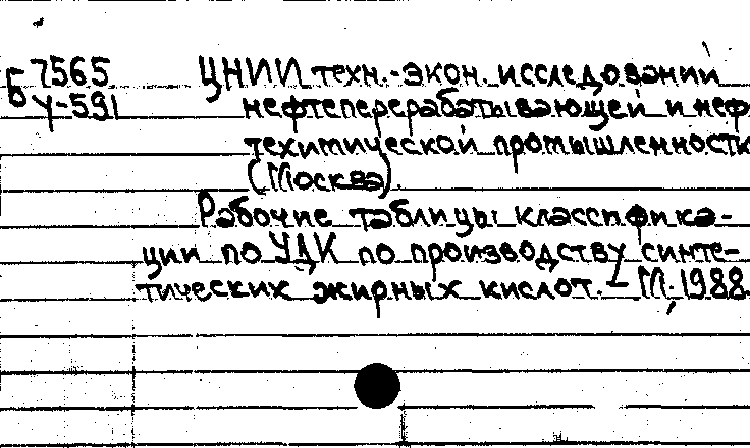 Б 7565 ЦНИИ техн.-экон. исследований
У-591 нефтеперерабатывающей и неф
техимической промышленности
(Москва).
Рабочие таблицы классифика-
ции по УДК по производству синте-
тических жирных кислот. – М, 1988.